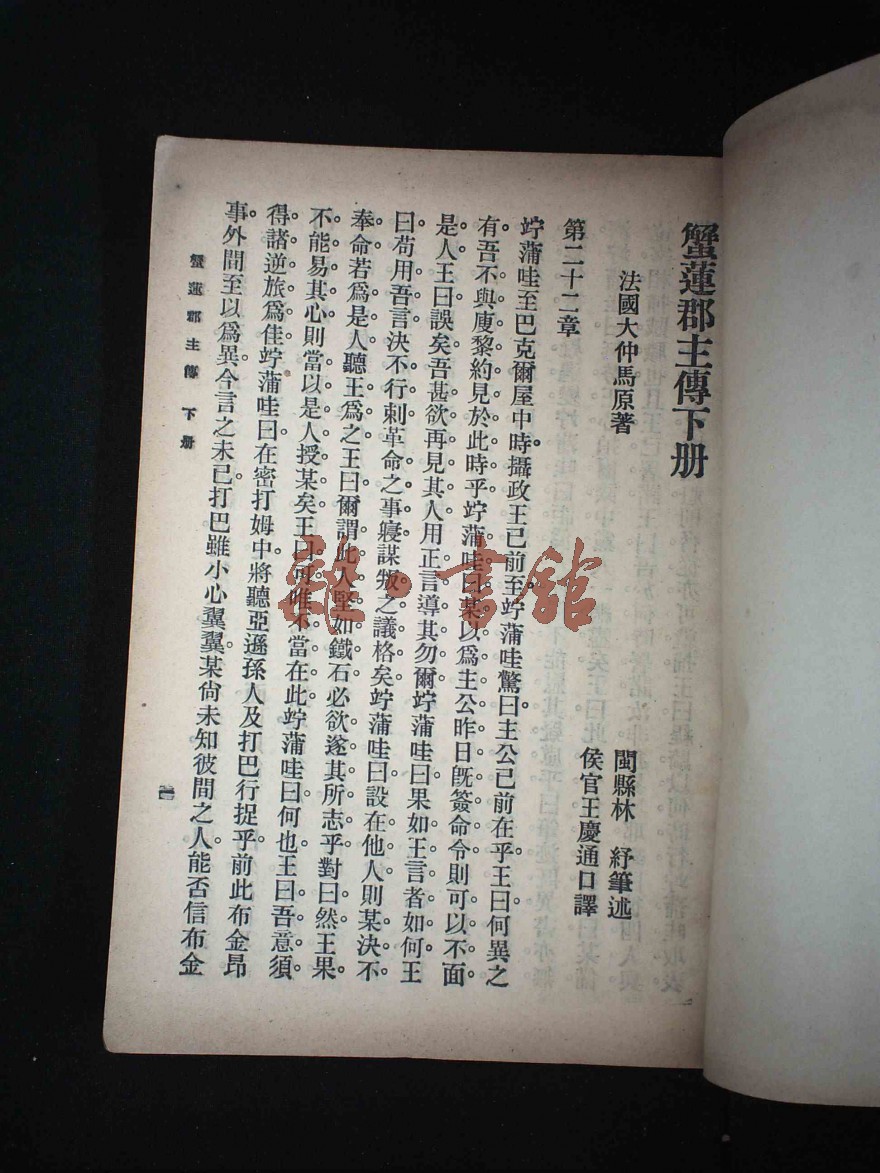 蟹蓮郡主傳下册
法國大仲馬原著
閩縣林　紓筆述
侯官王慶通口譯
第二十二章
竚蒲哇至巴克爾屋中時。攝政王已前至。竚蒲哇驚曰。主公已前在乎。王曰。何異之
有。吾不與廋黎約見於此時乎。竚蒲哇曰。某以爲主公昨日旣簽命令。則可以不面
是人。王曰。誤矣。吾甚欲再見其人。用正言導其勿爾。竚蒲哇曰。果如王言者如何。王
曰。苟用吾言。決不行刺。革命之事寢。謀叛之議格矣。竚蒲哇曰。設在他人。則某決不
奉命。若爲是人。聽王爲之。王曰。爾謂此人堅如鐵石。必欲遂其所志乎。對曰。然。王果
不能易其心。則當以是人授某矣。王曰。可。唯不當在此。竚蒲哇曰。何也。王曰。吾意須
得諸逆旅爲佳。竚蒲哇曰。在密打姆中。將聽亞遜孫人及打巴行捉乎。前此布金昂
事。外間至以爲異。今言之未已。打巴雖小心翼翼。某尙未知彼間之人。能否信布金
蟹蓮郡主傳　下册
一
雜·書館